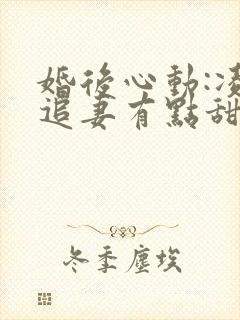 婚後心動:凌
追妻有點甜
冬季塵埃